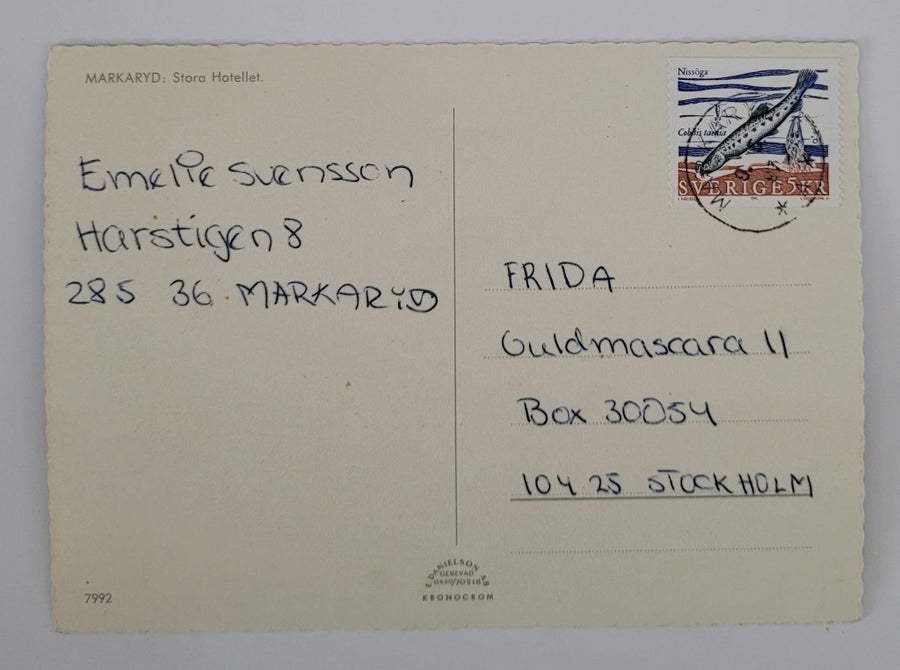 MARKARYD: Stora Hotellet.
Emelie Svensson
Harstigen 8
285 36 MARKARYD
Nissöga
Cobitis taenia
SVERIGE 5KR
FRIDA
Guldmascara 11
Box 30054
104 25 STOCKHOLM
E. DANIELSON AB
GENEVAD
0430/70218
KRONOCROM
7992